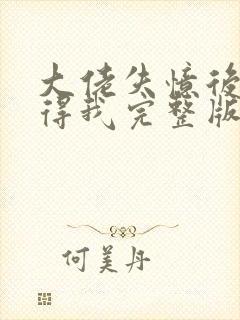 大佬失憶後
得我完整版
何美丹